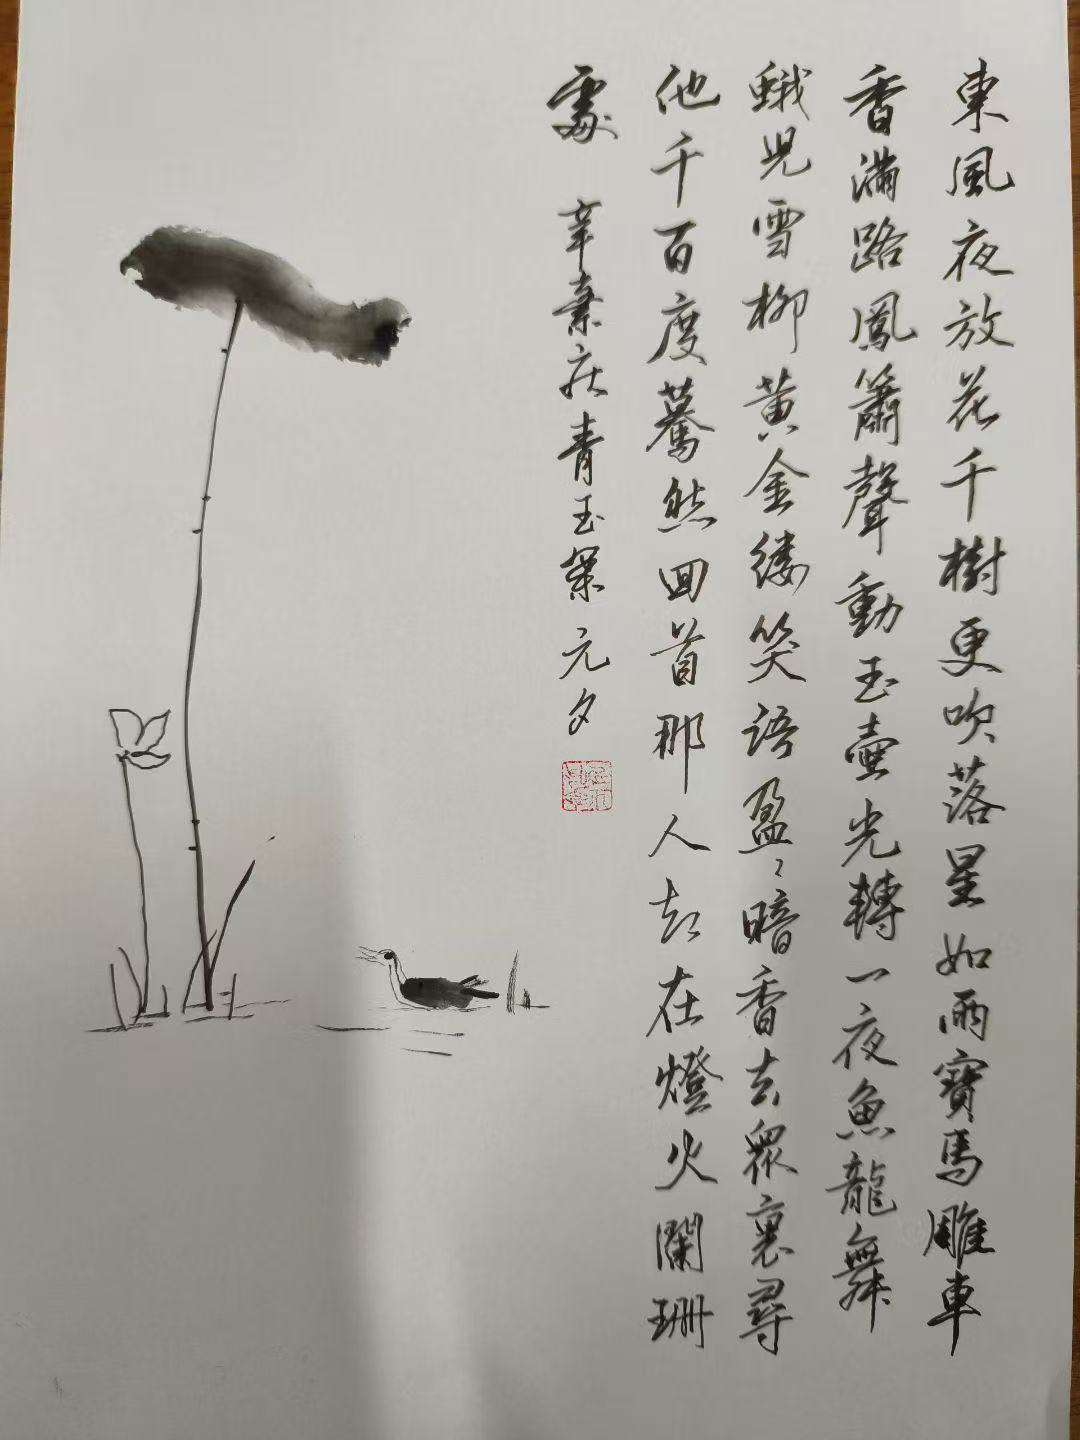 東風夜放花千樹更吹落星如雨寶馬雕車
香滿路鳳簫聲動玉壺光轉一夜魚龍舞
蛾兒雪柳黄金缕笑語盈〻暗香去眾裏尋
他千百度驀然回首那人却在燈火闌珊
處
辛棄疾青玉案元夕